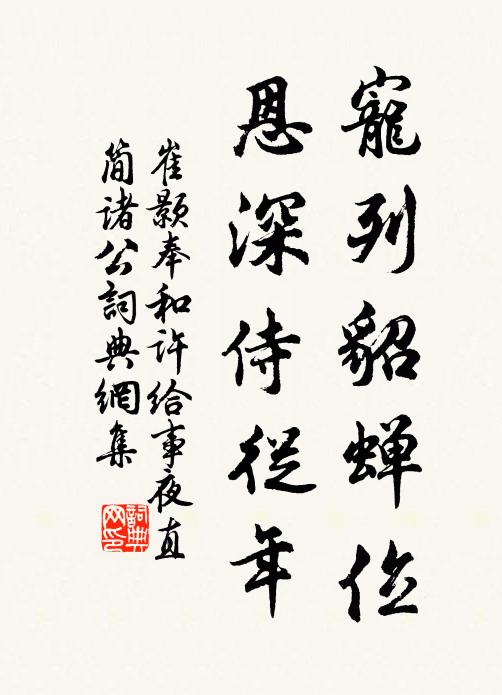 寵列貂蟬位
恩深侍從年
崔顥奉和許給事夜直
簡諸公詞典網集
詞典網印